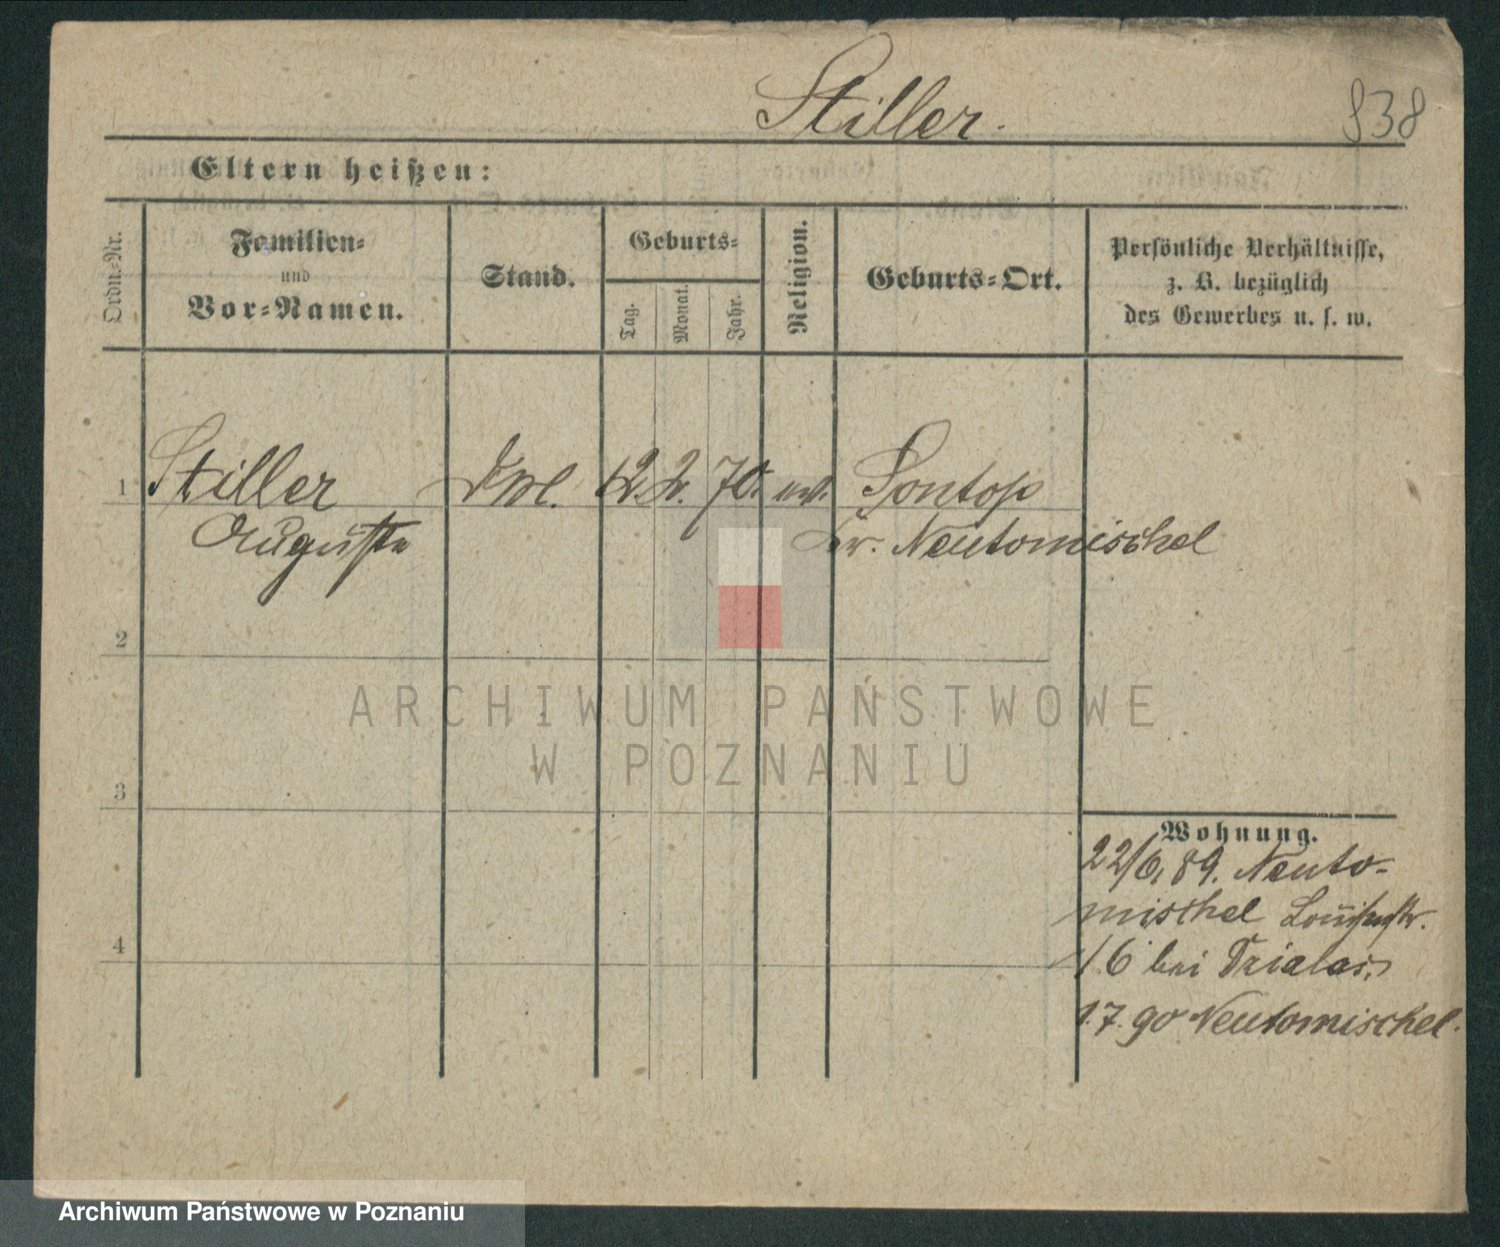 Stiller.
838
Eltern heißen:
Ordn.-Nr.
Familien-
und
Vor-Namen.
Stand.
Geburts-
Tag.
Monat.
Jahr.
Religion.
Geburts-Ort.
Persönliche Verhältnisse,
z. B. bezüglich
des Gewerbes u. s. w.
1 Stiller 12. 2. 70. ev. Sontop
Auguste Kr. Neutomischel
2
ARCHIWUM PAŃSTWOWE
W POZNANIU
3
Wohnung.
22/6. 89. Neuto-
mischel Louisenstr.
4
16 bei
1.7.90 Neutomischel.
Archiwum Państwowe w Poznaniu